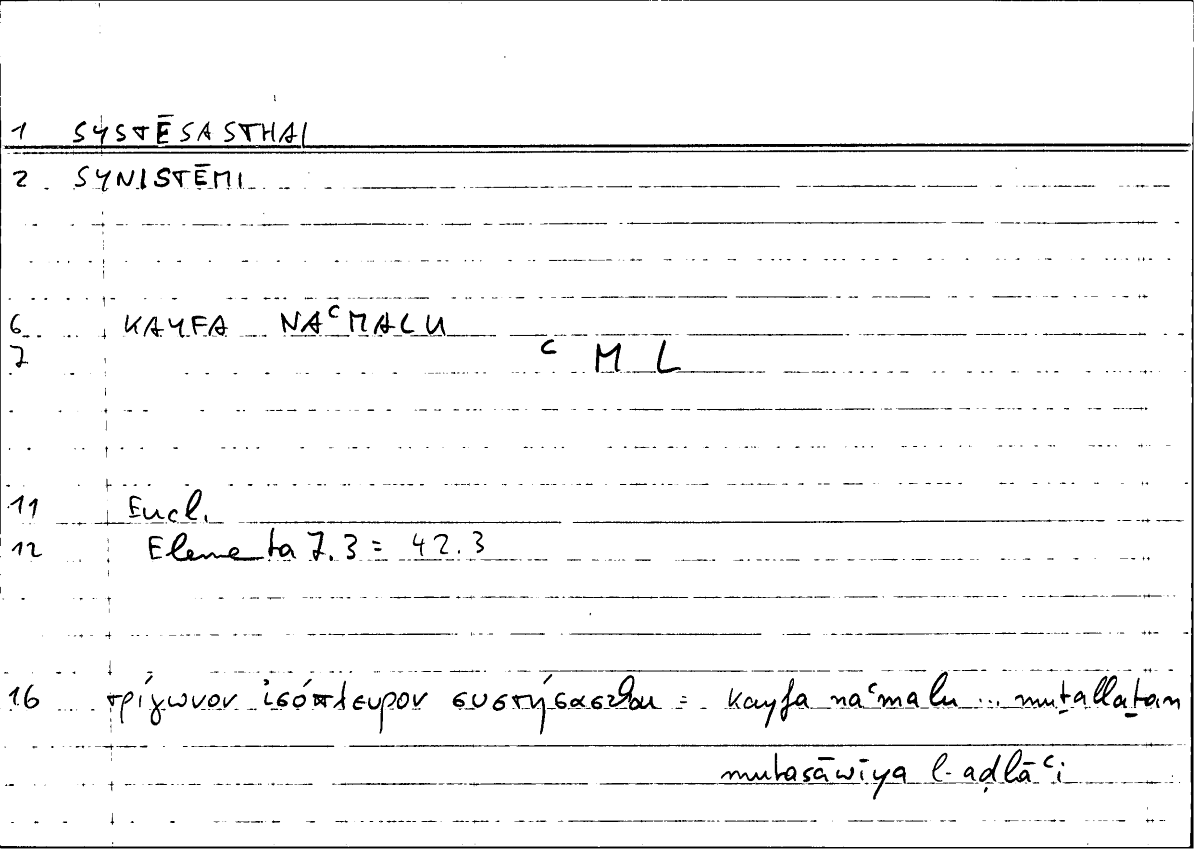 1 SYSTĒSASTHAI
2 SYNISTĒMI
6 KAYFA NAʿMALU
7 ʿ M L
11 Eucl.
12 Elementa 7.3 = 42.3
16 τρίγωνον ἰσόπλευρον συστήσασθαι = kayfa naʿmalu ... muṯallaṯan
mutasāwīya l-aḍlāʿi